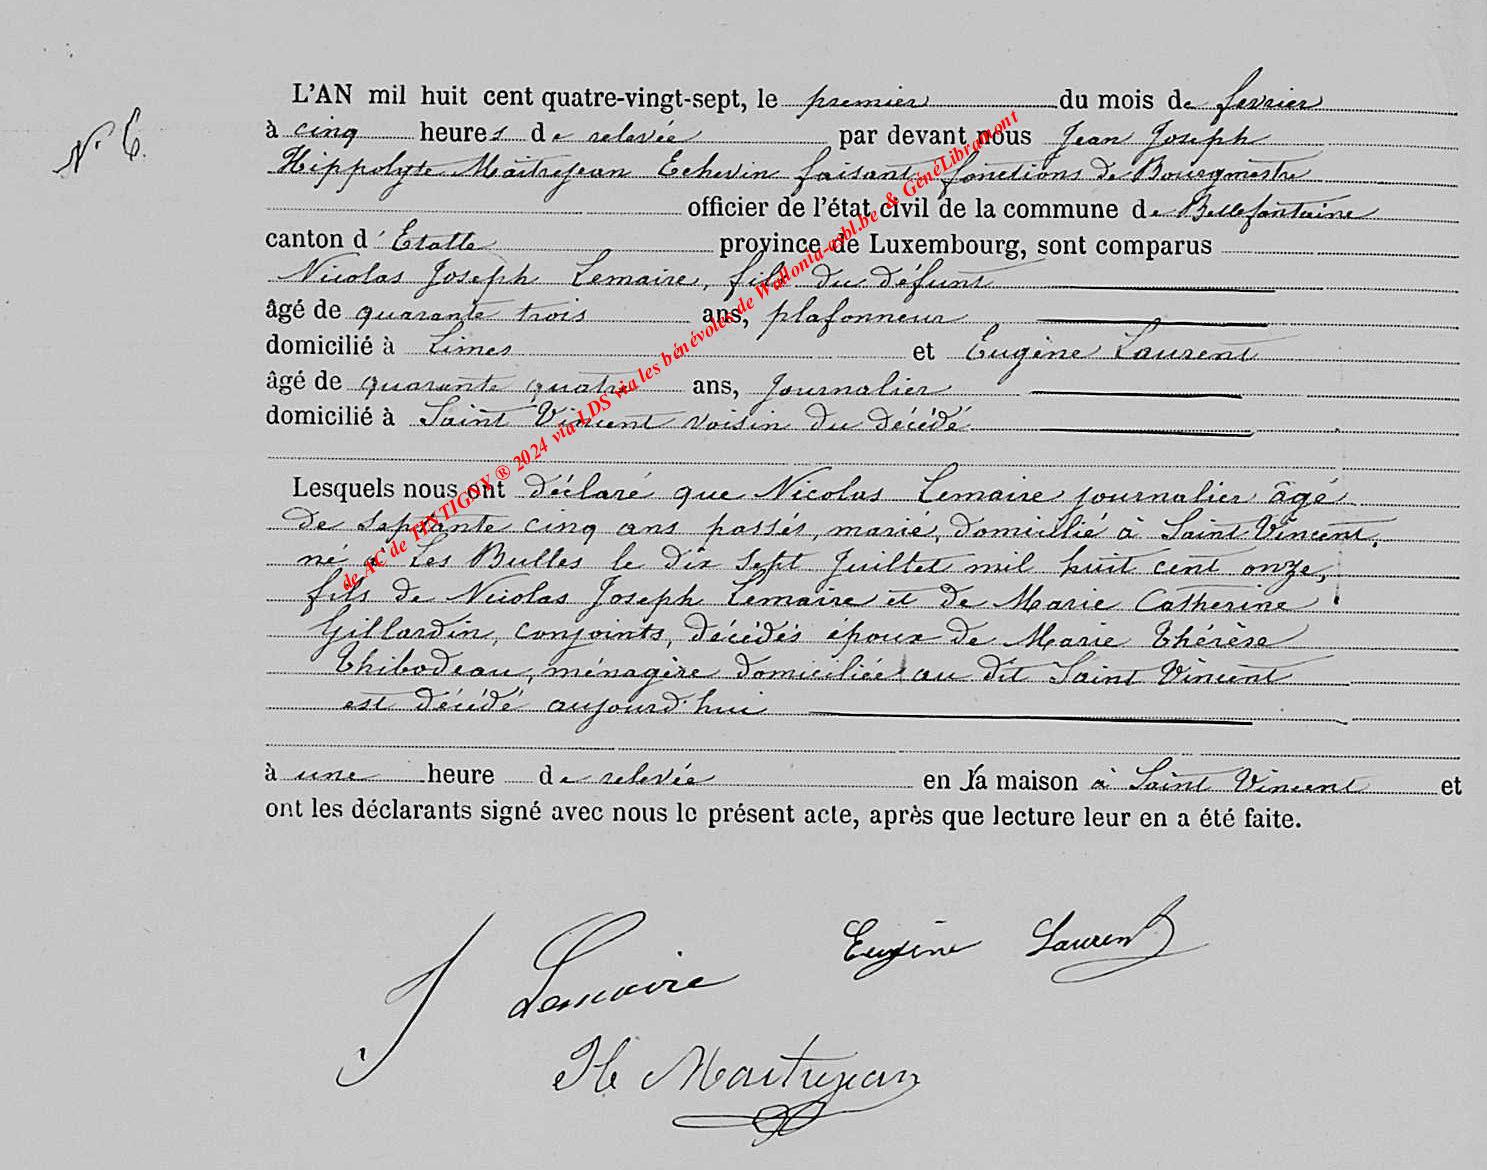 N° 6.
L'AN mil huit cent quatre-vingt-sept, le premier du mois de fevrier
à cinq heures de relevée par devant nous Jean Joseph
Hippolyte Maitrejean Echevin faisant fonctions de Bourgmestre
officier de l'état civil de la commune de Bellefontaine
canton d'Etalle province de Luxembourg, sont comparus
Nicolas Joseph Lemaire, fils du défunt
âgé de quarante trois ans, plafonneur
domicilié à Limes et Eugène Laurent
âgé de quarante quatre ans, journalier
domicilié à Saint Vincent voisin du décédé
Lesquels nous ont déclaré que Nicolas Lemaire journalier âgé
de septante cinq ans passés, marié, domicilié à Saint Vincent,
né à Les Bulles le dix sept Juillet mil huit cent onze,
fils de Nicolas Joseph Lemaire et de Marie Catherine
Gillardin, conjoints, décédés époux de Marie Thérèse
Thibodeau, ménagère domiciliée au dit Saint Vincent
est décédé aujourd'hui
à une heure de relevée en la maison à Saint Vincent et
ont les déclarants signé avec nous le présent acte, après que lecture leur en a été faite.
J Lemaire Eugène Laurent
H Maitrejean
de AC de TINTIGNY ® 2024 via LDS via les bénévoles de Wallonia-asbl.be & GénéLibramont